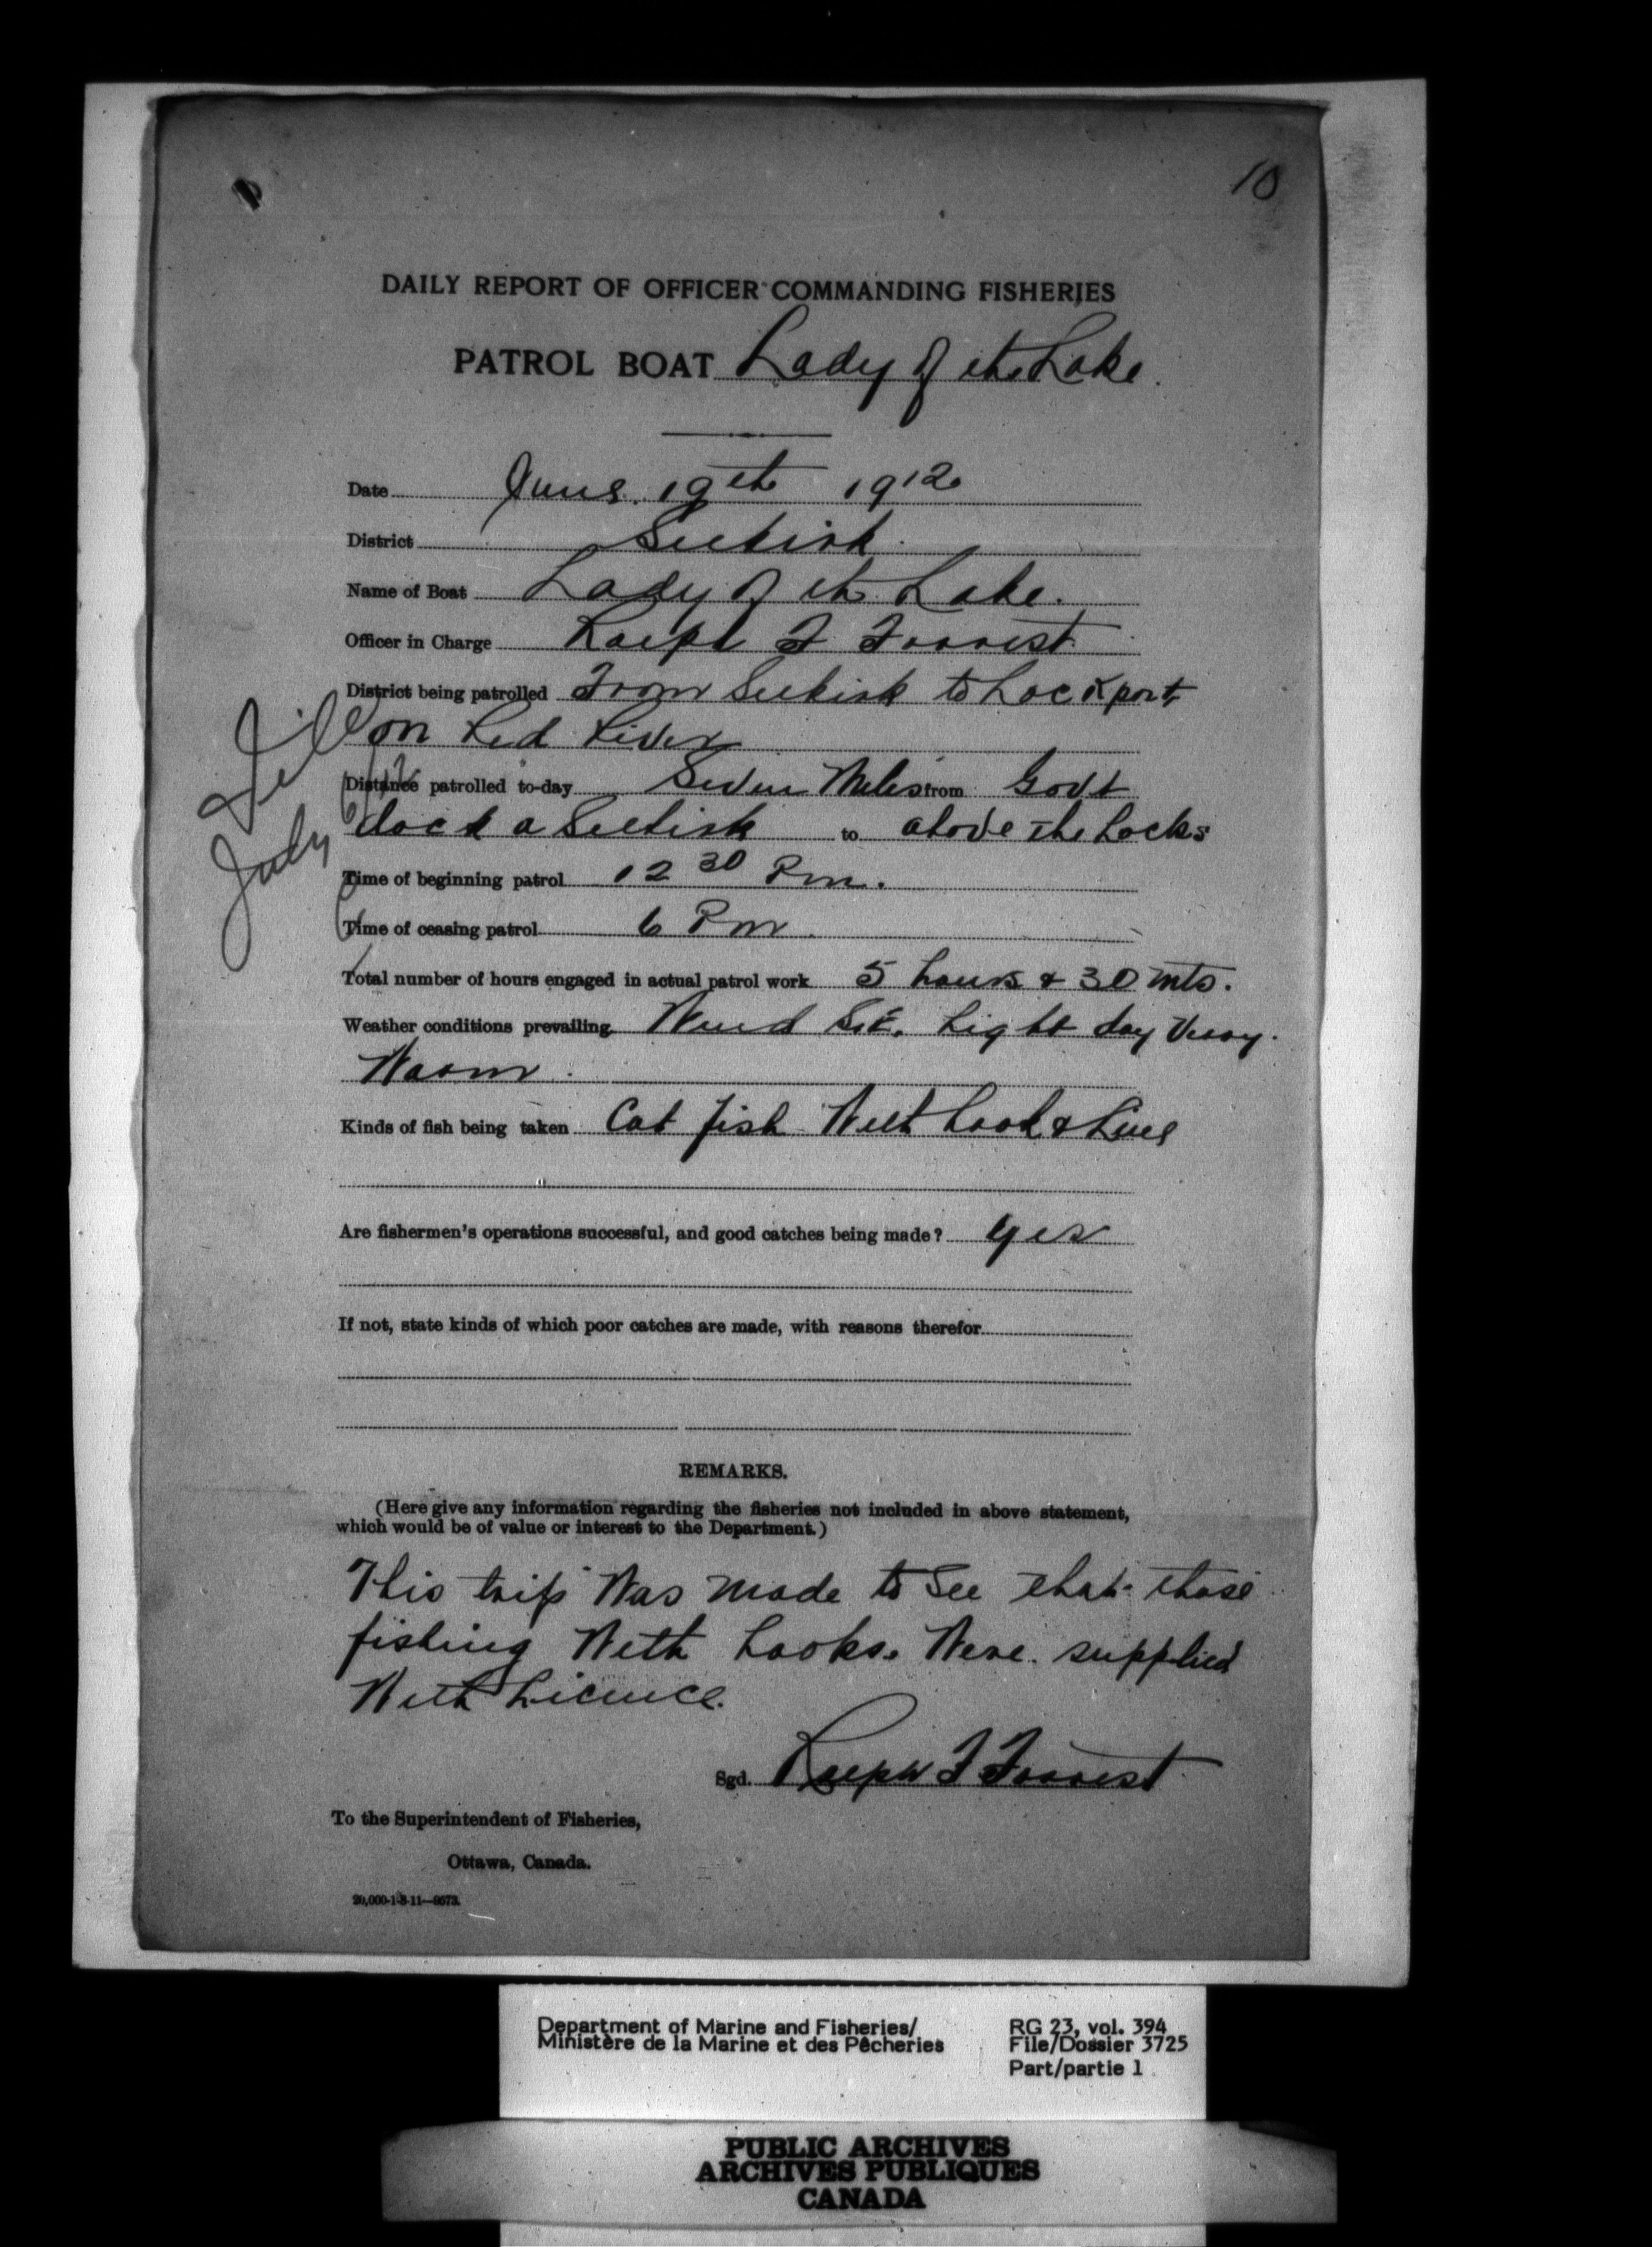 10
DAILY REPORT OF OFFICER COMMANDING FISHERIES
PATROL BOAT Lady of the Lake.
Date June 19th 1912
District Selkirk.
Name of Boat Lady of the Lake.
Officer in Charge Ralph F Forrest
District being patrolled From Selkirk to Lockport
on Red River
File
July
Distance patrolled to-day Seven Miles from Govt
dock a Selkirk to above the Locks
Time of beginning patrol 12 30 Pm.
Time of ceasing patrol 6 Pm.
Total number of hours engaged in actual patrol work 5 hours & 30 mts.
Weather conditions prevailing Wind S.E. Light day Very
Warm.
Kinds of fish being taken Cat fish With hook & Line
Are fishermen's operations successful, and good catches being made? yes
If not, state kinds of which poor catches are made, with reasons therefor
REMARKS.
(Here give any information regarding the fisheries not included in above statement,
which would be of value or interest to the Department.)
This trip Was Made to See that those
fishing With hooks. Were supplied
With Licence.
Sgd. Ralph F Forrest
To the Superintendent of Fisheries,
Ottawa, Canada.
20,000-1-8-11—9573.
Department of Marine and Fisheries/
Ministère de la Marine et des Pêcheries
RG 23, vol. 394
File/Dossier 3725
Part/partie 1
PUBLIC ARCHIVES
ARCHIVES PUBLIQUES
CANADA